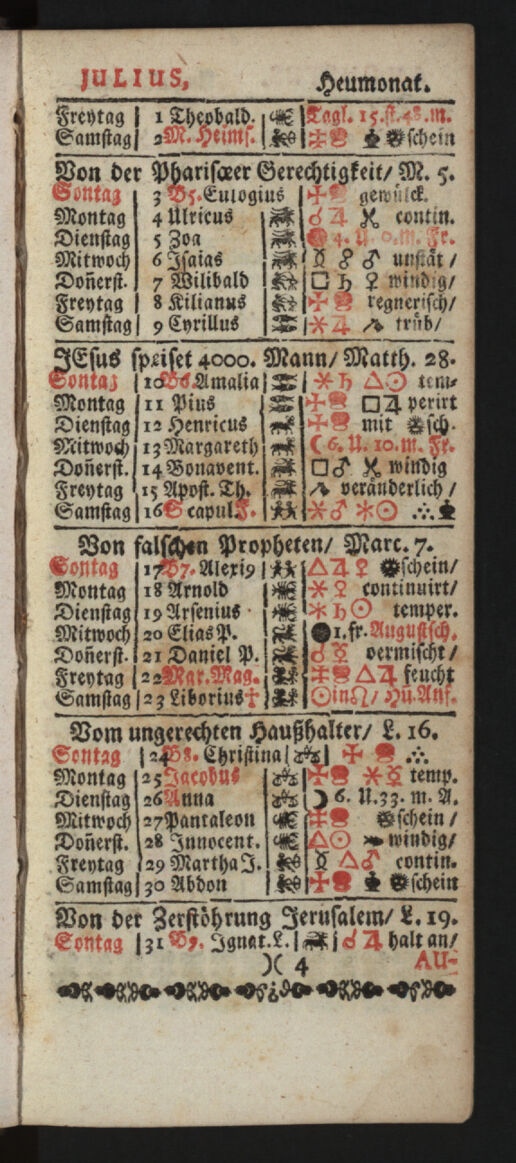 JULIUS, Heumonat.
Freytag 1 Theobald. Tagl. 15. st. 48. m.
Samstag 2 M. Heims. schein
Von der Phariseer Gerechtigkeit/ M. 5.
Sontag 3 B5. Eulogius gewülck.
Montag 4 Ulricus ☌ ♃ contin.
Dienstag 5 Zoa 4. U. 0. m. Fr.
Mitwoch 6 Isaias ☿ ☍ ♂ unstät /
Doñerst. 7 Wilibald □ ♄ ♀ windig/
Freytag 8 Kilianus regnerisch/
Samstag 9 Cyrillus ⚹ ♃ trüb/
JEsus speiset 4000. Mann/ Matth. 28.
Sontag 10 B6. Amalia ⚹ ♄ △ ☉ tem-
Montag 11 Pius □ ♃ perirt
Dienstag 12 Henricus mit sch.
Mitwoch 13 Margareth ☾ 6. U. 10. m. Fr.
Doñerst. 14 Bonavent. □ ♂ windig
Freytag 15 Apost. Th. veränderlich /
Samstag 16 Scapul. F. ⚹ ♂ ⚹ ☉
Von falschen Propheten/ Marc. 7.
Sontag 17 B7. Alexi9 △ ♃ ♀ schein/
Montag 18 Arnold ⚹ ♀ continuirt/
Dienstag 19 Arsenius ⚹ ♄ ☉ temper.
Mitwoch 20 Elias P. ● 1. fr. Augustsch.
Doñerst. 21 Daniel P. ☌ ☿ vermischt /
Freytag 22 Mar. Mag. △ ♃ feucht
Samstag 23 Liborius ☉ in ♌ / Hü. Anf.
Vom ungerechten Haußhalter/ L. 16.
Sontag 24 B8. Christina
Montag 25 Jacobus ⚹ ☿ temp.
Dienstag 26 Anna ☽ 6. U. 33. m. A.
Mitwoch 27 Pantaleon schein /
Doñerst. 28 Innocent. △ ☉ windig/
Freytag 29 Martha J. ☿ △ ♂ contin.
Samstag 30 Abdon schein
Von der Zerstöhrung Jerusalem/ L. 19.
Sontag 31 B9. Ignat. L. ☌ ♃ halt an/
)( 4 AU-